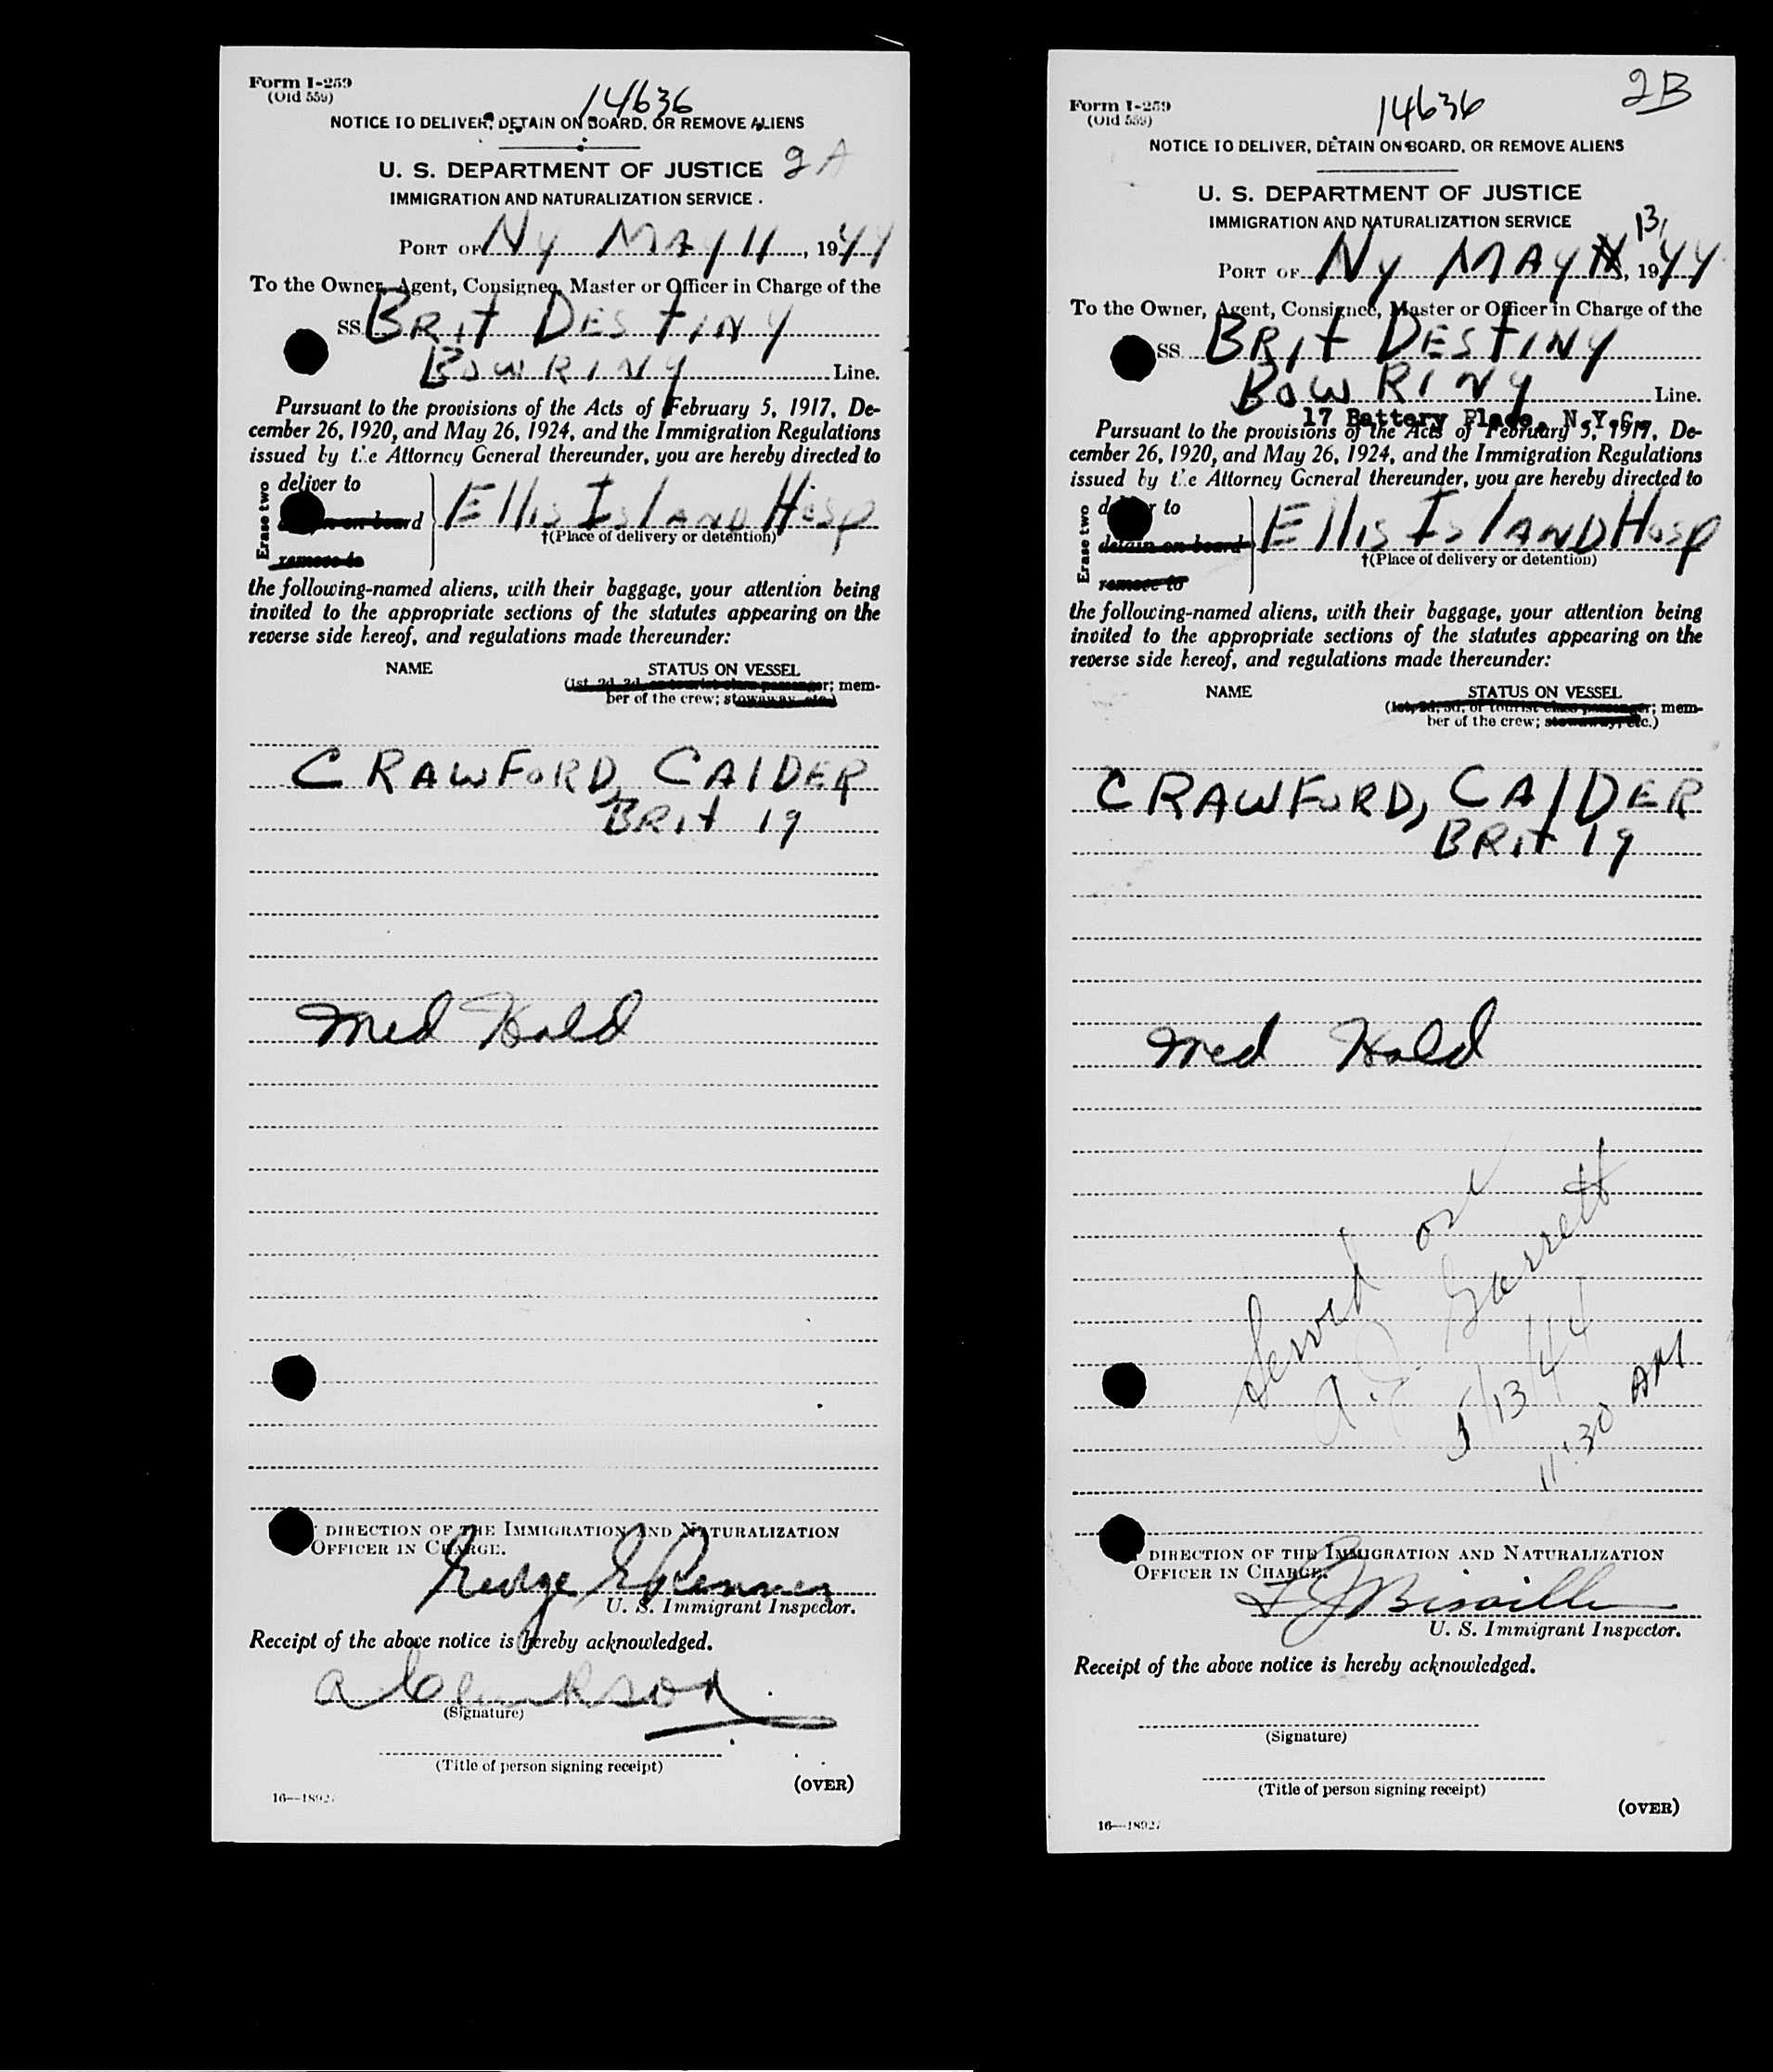 Form I-259
(Old 559)
14636
NOTICE TO DELIVER, DETAIN ON BOARD, OR REMOVE ALIENS
U. S. DEPARTMENT OF JUSTICE 2A
IMMIGRATION AND NATURALIZATION SERVICE
PORT OF NY MAY 11, 1944
To the Owner, Agent, Consignee, Master or Officer in Charge of the
SS BRIT DESTINY
BOWRINY Line.
Pursuant to the provisions of the Acts of February 5, 1917, De-
cember 26, 1920, and May 26, 1924, and the Immigration Regulations
issued by the Attorney General thereunder, you are hereby directed to
Erase two
deliver to
detain on board
remove to
Ellis Island Hosp
†(Place of delivery or detention)
the following-named aliens, with their baggage, your attention being
invited to the appropriate sections of the statutes appearing on the
reverse side hereof, and regulations made thereunder:
NAME STATUS ON VESSEL
(1st, 2d, 3d, or tourist class passenger; mem-
ber of the crew; stowaway, etc.)
CRAWFORD, CAlDER
BRIT 19
Med Hold
DIRECTION OF THE IMMIGRATION AND NATURALIZATION
OFFICER IN CHARGE.
George
U. S. Immigrant Inspector.
Receipt of the above notice is hereby acknowledged.
(Signature)
(Title of person signing receipt)
(OVER)
16—18927
Form I-259
(Old 559)
14636
2B
NOTICE TO DELIVER, DETAIN ON BOARD, OR REMOVE ALIENS
U. S. DEPARTMENT OF JUSTICE
IMMIGRATION AND NATURALIZATION SERVICE
PORT OF NY MAY 13, 1944
To the Owner, Agent, Consignee, Master or Officer in Charge of the
SS BRIT DESTINY
BOWRINY Line.
17 Battery Place, N.Y.C.
Pursuant to the provisions of the Acts of February 5, 1917, De-
cember 26, 1920, and May 26, 1924, and the Immigration Regulations
issued by the Attorney General thereunder, you are hereby directed to
Erase two
deliver to
detain on board
remove to
Ellis Island Hosp
†(Place of delivery or detention)
the following-named aliens, with their baggage, your attention being
invited to the appropriate sections of the statutes appearing on the
reverse side hereof, and regulations made thereunder:
NAME STATUS ON VESSEL
(1st, 2d, 3d, or tourist class passenger; mem-
ber of the crew; stowaway, etc.)
CRAWFORD, CAlDER
BRIT 19
Med Hold
Served on
A. J. Garrett
5/13/44
11:30 AM
DIRECTION OF THE IMMIGRATION AND NATURALIZATION
OFFICER IN CHARGE.
U. S. Immigrant Inspector.
Receipt of the above notice is hereby acknowledged.
(Signature)
(Title of person signing receipt)
(OVER)
16—18927